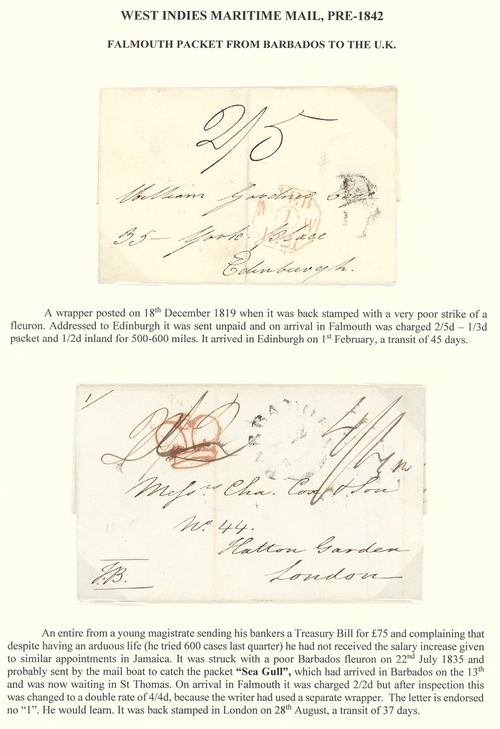 WEST INDIES MARITIME MAIL, PRE-1842
FALMOUTH PACKET FROM BARBADOS TO THE U.K.
2/5
William Gardner Esqr
35 - York Place
Edinburgh.
A wrapper posted on 18th December 1819 when it was back stamped with a very poor strike of a
fleuron. Addressed to Edinburgh it was sent unpaid and on arrival in Falmouth was charged 2/5d – 1/3d
packet and 1/2d inland for 500-600 miles. It arrived in Edinburgh on 1st February, a transit of 45 days.
1/
2/2
BARBADOES
4/4
Messrs Cha. Cox & Son
No. 44.
Hatton Garden
London
An entire from a young magistrate sending his bankers a Treasury Bill for £75 and complaining that
despite having an arduous life (he tried 600 cases last quarter) he had not received the salary increase given
to similar appointments in Jamaica. It was struck with a poor Barbados fleuron on 22nd July 1835 and
probably sent by the mail boat to catch the packet “Sea Gull”, which had arrived in Barbados on the 13th
and was now waiting in St Thomas. On arrival in Falmouth it was charged 2/2d but after inspection this
was changed to a double rate of 4/4d, because the writer had used a separate wrapper. The letter is endorsed
no “1”. He would learn. It was back stamped in London on 28th August, a transit of 37 days.